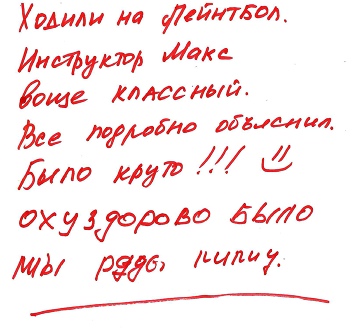 Ходили на Пейнтбол.
Инструктор Макс
воще классный.
Все подробно объяснил.
Было круто!!!
охуздорово было
мы